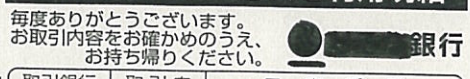 毎度ありがとうございます。
お取引内容をお確かめのうえ、
お持ち帰りください。
銀行